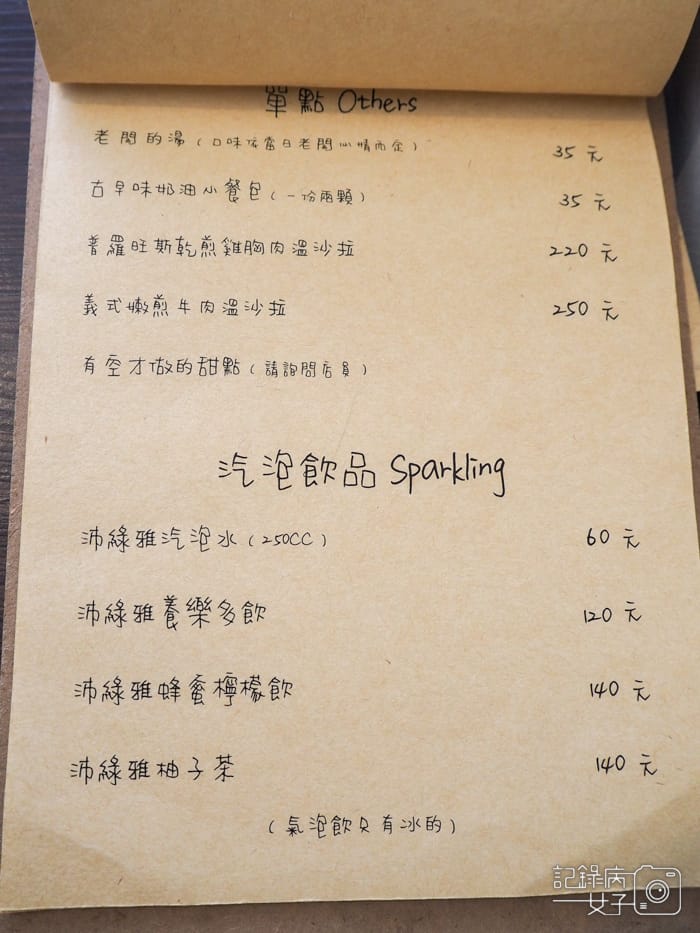 單點 Others
老闆的湯（口味依當日老闆心情而定） 35 元
古早味奶油小餐包（一份兩顆） 35 元
普羅旺斯乾煎雞胸肉溫沙拉 220 元
義式嫩煎牛肉溫沙拉 250 元
有空才做的甜點（請詢問店員）
汽泡飲品 Sparkling
沛綠雅汽泡水（250CC） 60 元
沛綠雅養樂多飲 120 元
沛綠雅蜂蜜檸檬飲 140 元
沛綠雅柚子茶 140 元
（氣泡飲只有冰的）
記錄病
女子